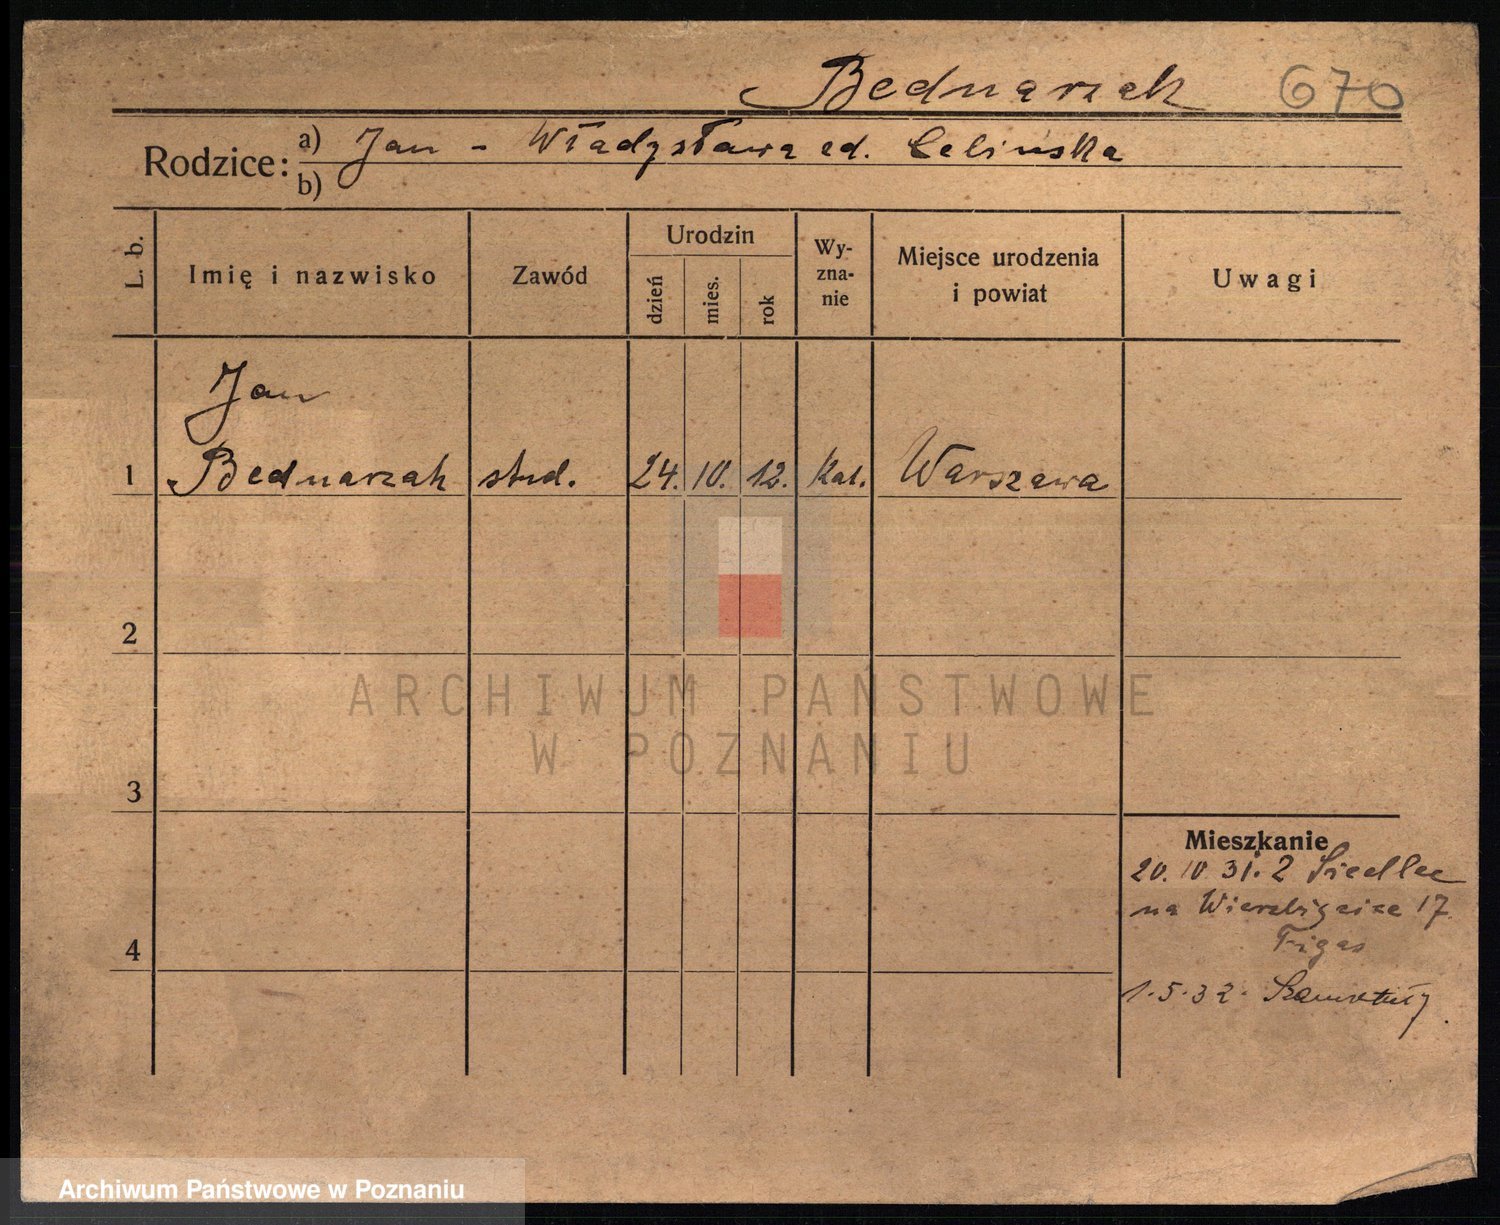 Bednarzak 670
Rodzice: a) Jan - Władysława zd. Celińska
b)
L. b.
Imię i nazwisko
Zawód
Urodzin
dzień
mies.
rok
Wy-
zna-
nie
Miejsce urodzenia
i powiat
Uwagi
Jan
1 Bednarzak stud. 24. 10. 12. kat. Warszawa
2
3
4
Mieszkanie
20. 10 31. z Siedlec
na Wierzbięcice 17
1.5.32. Szamotuły
ARCHIWUM PAŃSTWOWE
W POZNANIU
Archiwum Państwowe w Poznaniu